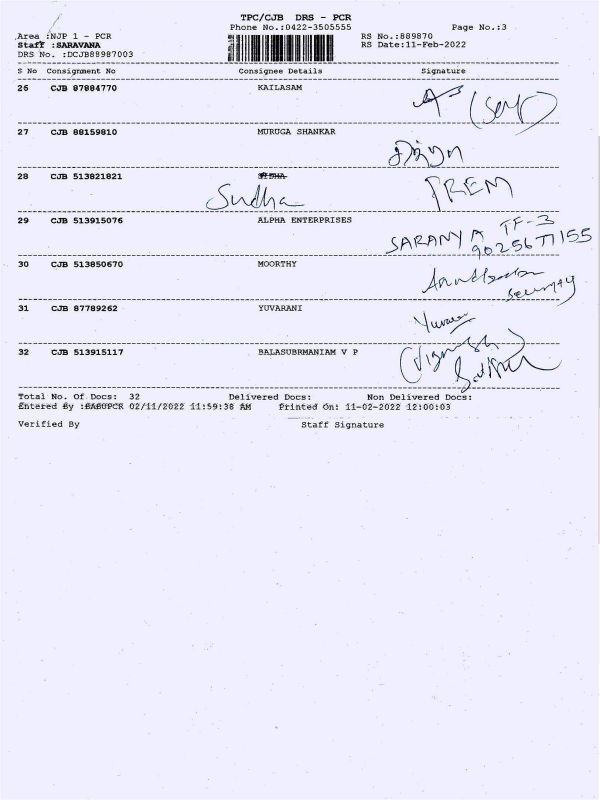 TPC/CJB DRS - PCR
Phone No.:0422-3505555 Page No.:3
Area :NJP 1 - PCR RS No.:889870
Staff :SARAVANA RS Date:11-Feb-2022
DRS No. :DCJB88987003
S No Consignment No Consignee Details Signature
26 CJB 87884770 KAILASAM
27 CJB 88159810 MURUGA SHANKAR
28 CJB 513821821 Sudha PREM
29 CJB 513915076 ALPHA ENTERPRISES TF-3
SARANYA 9025677155
30 CJB 513850670 MOORTHY
Security
31 CJB 87789262 YUVARANI
32 CJB 513915117 BALASUBRMANIAM V P
Total No. Of Docs: 32 Delivered Docs: Non Delivered Docs:
Entered By :BABUPCR 02/11/2022 11:59:38 AM Printed On: 11-02-2022 12:00:03
Verified By Staff Signature